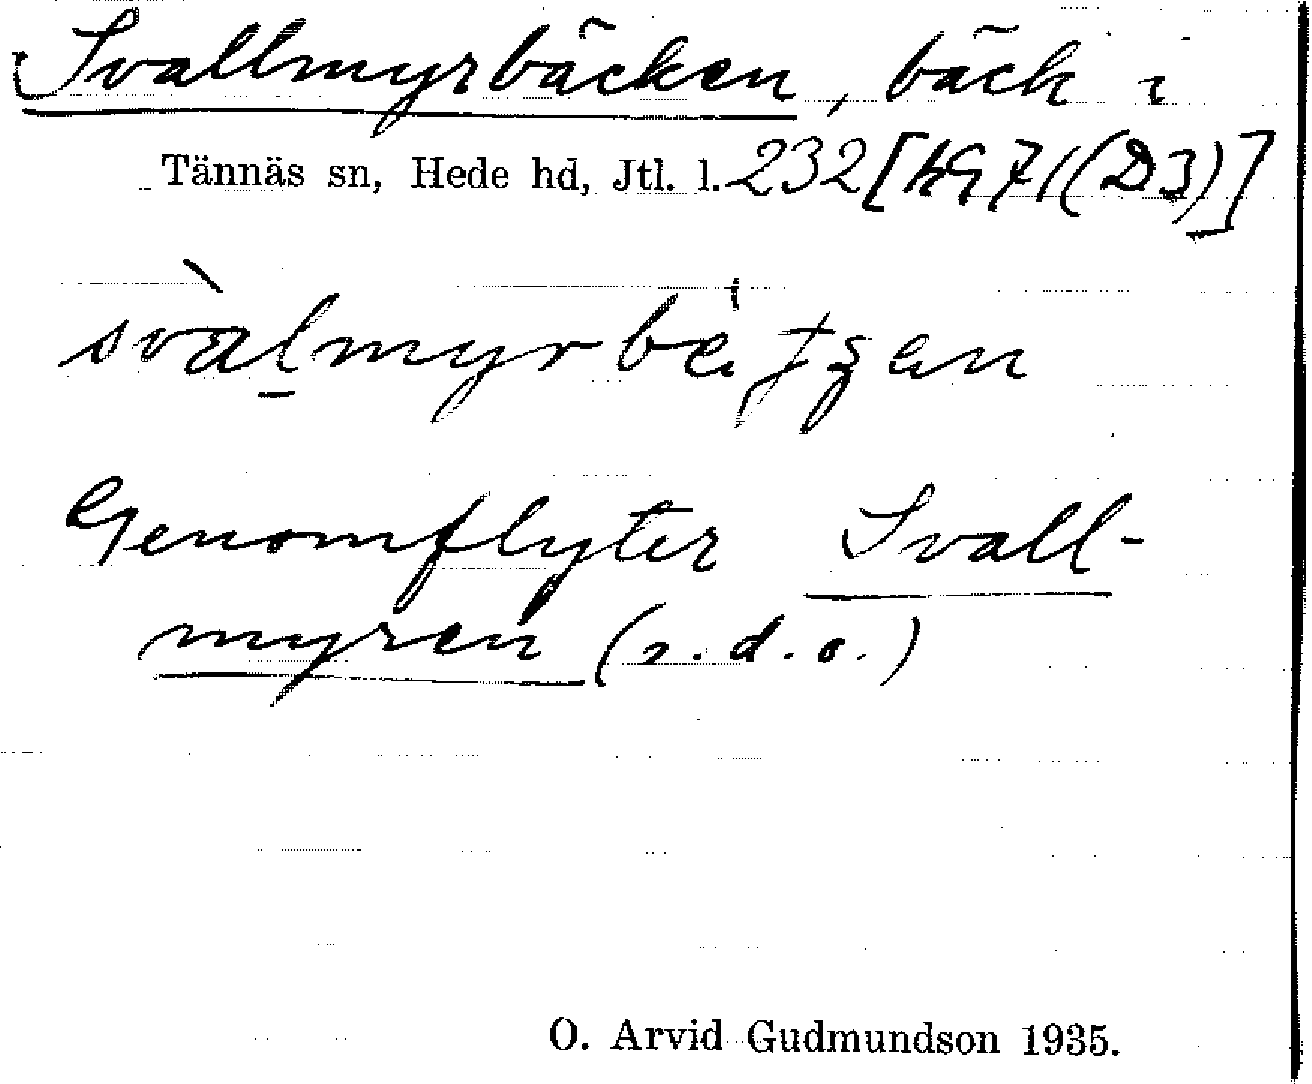 Svallmyrbäcken, bäck i
Tännäs sn, Hede hd, Jtl. l. 232
Genomflyter Svall-
myren (s.d.o.)
O. Arvid Gudmundson 1935.